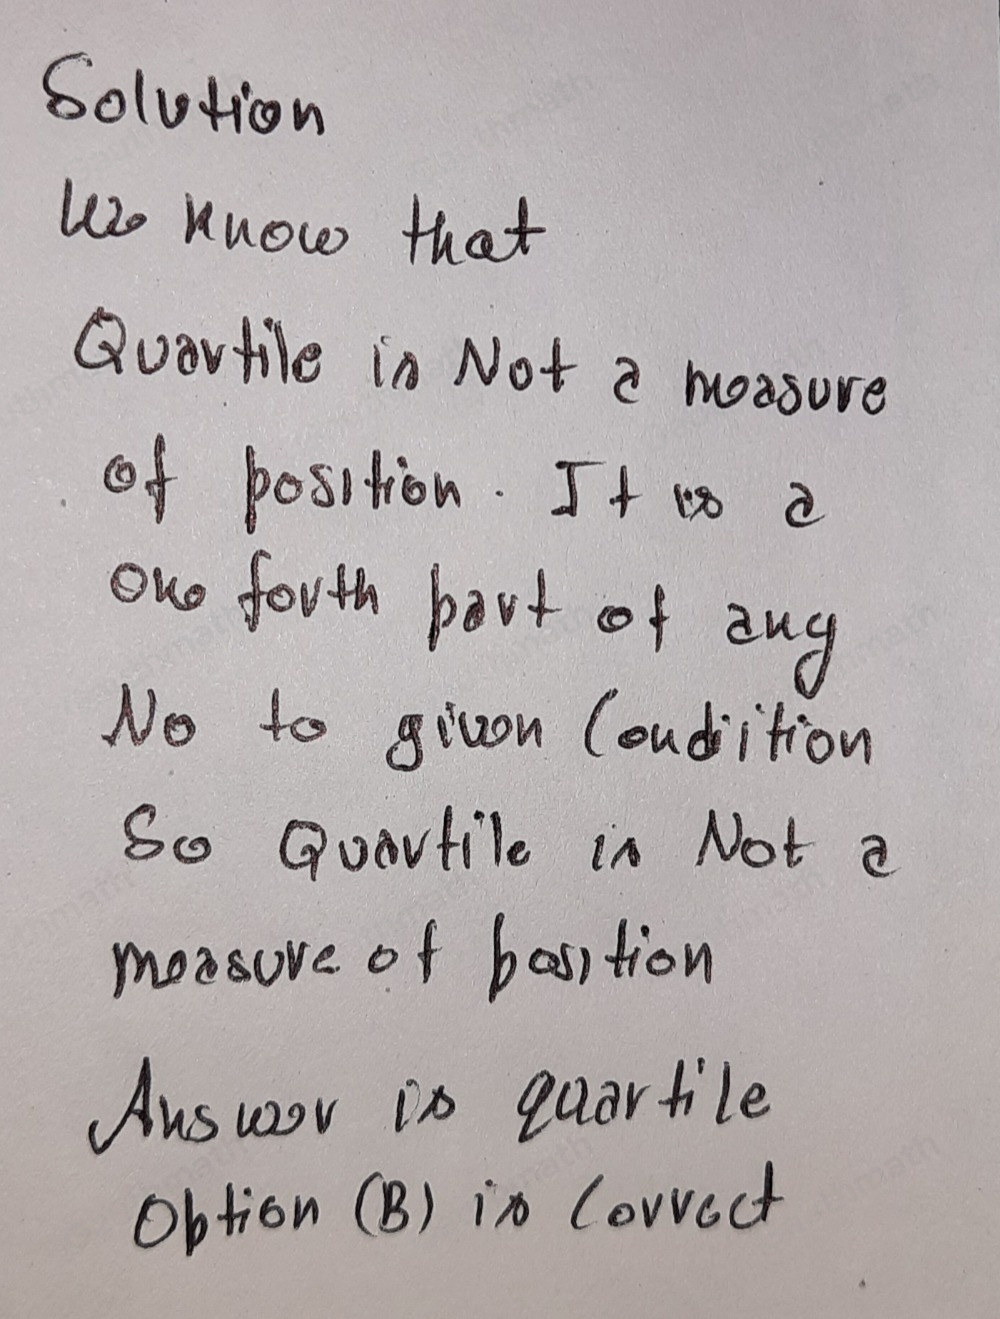 Solution
We know that
Quartile is Not a measure
of position. It is a
one forth part of any
No to given Condiition
So Quartile is Not a
measure of position
Answer is quartile
Option (B) is Correct